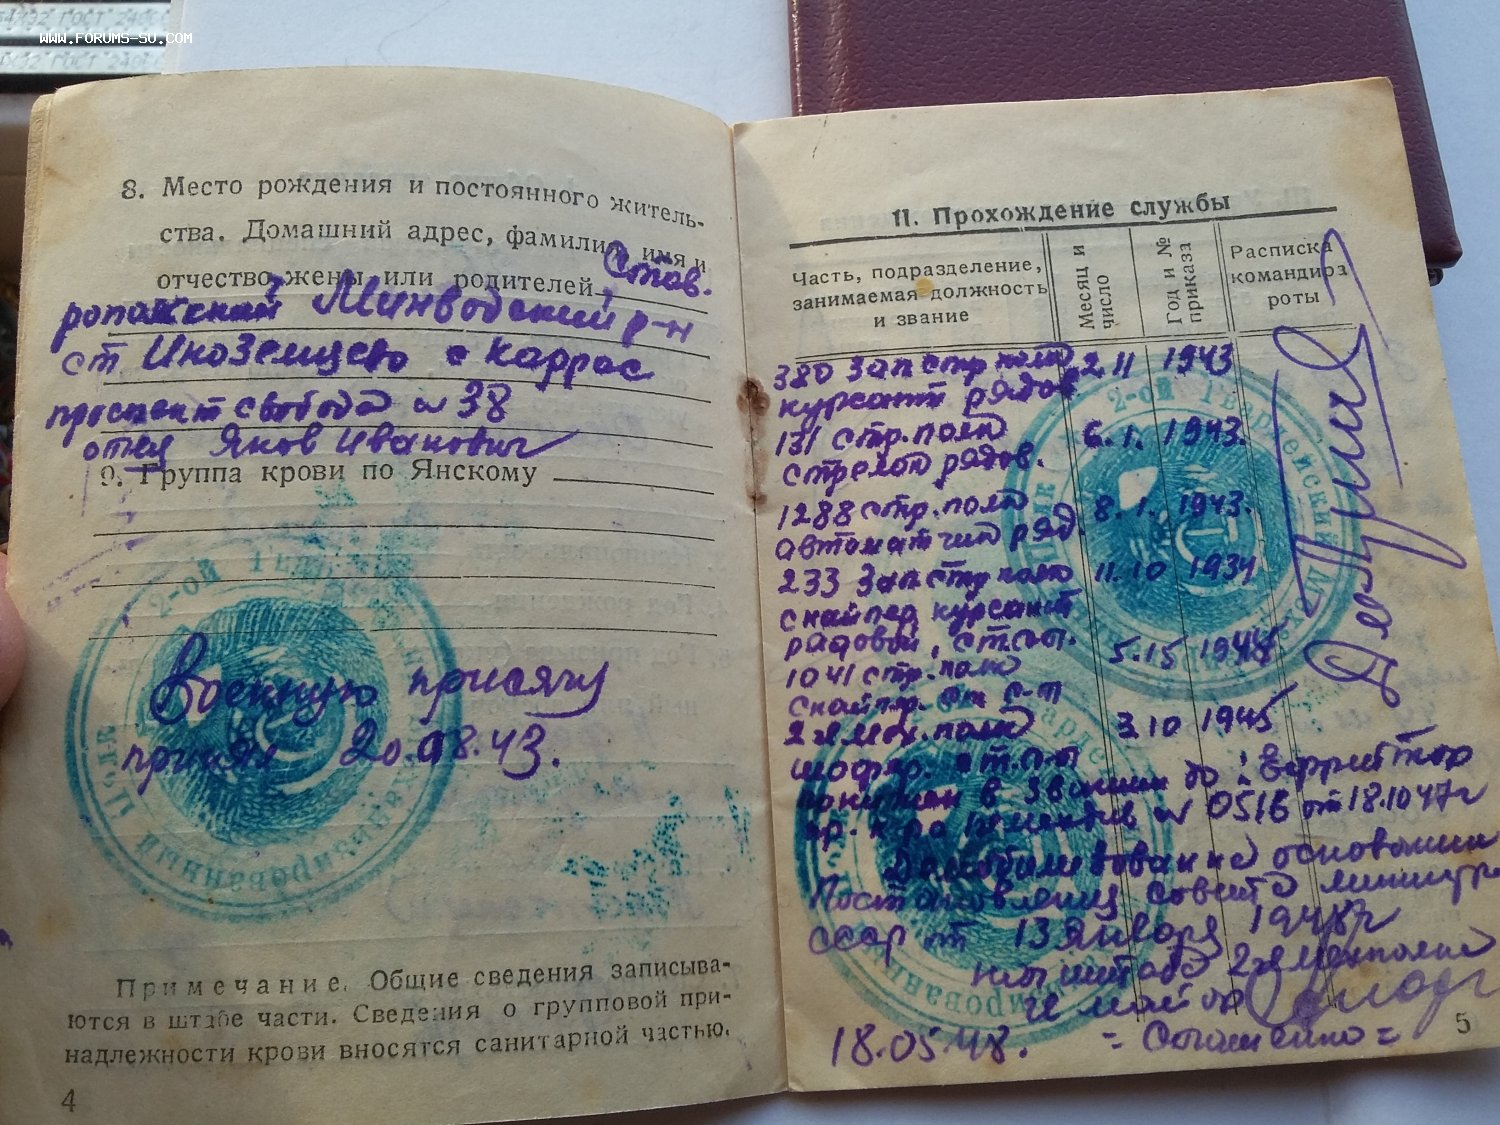 WWW.FORUMS-SU.COM
8. Место рождения и постоянного житель-
ства. Домашний адрес, фамилия, имя и
отчество жены или родителей Став.
ропожский Минводский р-н
ст. Иноземцево с Каррас
проспект свобода № 38
отец Яков Иванович
9. Группа крови по Янскому
2-ой Гвардейский
Военную присягу
принял 20.08.43.
Механизированный Полк
Примечание. Общие сведения записыва-
ются в штабе части. Сведения о групповой при-
надлежности крови вносятся санитарной частью.
4
11. Прохождение службы
Часть, подразделение,
занимаемая должность
и звание
Месяц и
число
Год и №
приказа
Расписка
командира
роты
380 Зап стр полк 2.11 1943
курсант рядов
131 стр. полк 6.1. 1943.
стрелок рядов.
1288 стр. полк 8.1. 1943.
автоматчик ряд.
233 Зап стр полк 11.10 1934
снайпер курсант
рядовой, ст.
1041 стр. полк 5.15 1945
снайпр. с-т
2 г. мех. полк 3.10 1945
шофер. ст.
понижен в звании до: Ефрейтор
пр. № 0516 от 18.10 47 г
Демобилизован на основании
Постановления Совета министра
СССР от 13 января 1948 г
нач штаба 2 г мехполка
г майор
18.05.48.
5